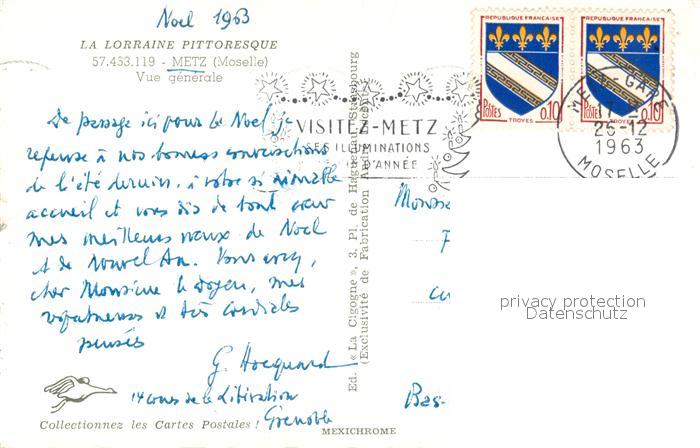 Noel 1963
LA LORRAINE PITTORESQUE
57.453.119 - METZ (Moselle)
Vue générale
De passage ici pour le Noel je
repense à nos bonnes conversations
de l'été dernier, à votre si aimable
accueil et vous dis de tout cœur
mes meilleurs vœux de Noel
et de nouvel An.
cher Monsieur le Doyen, mes
et très cordiales
pensées
G. Hocquard
14 cours de la Libération
Grenoble
Collectionnez les Cartes Postales !
MEXICHROME
Ed. « La Cigogne », 3, Pl. de Haguenau, Strasbourg
(Exclusivité de Fabrication
VISITEZ-METZ
SES ILLUMINATIONS
D'ANNÉE
REPUBLIQUE FRANÇAISE
POSTES 0,10
TROYES
REPUBLIQUE FRANÇAISE
POSTES 0,10
TROYES
GARE
25-12
1963
MOSELLE
privacy protection
Datenschutz